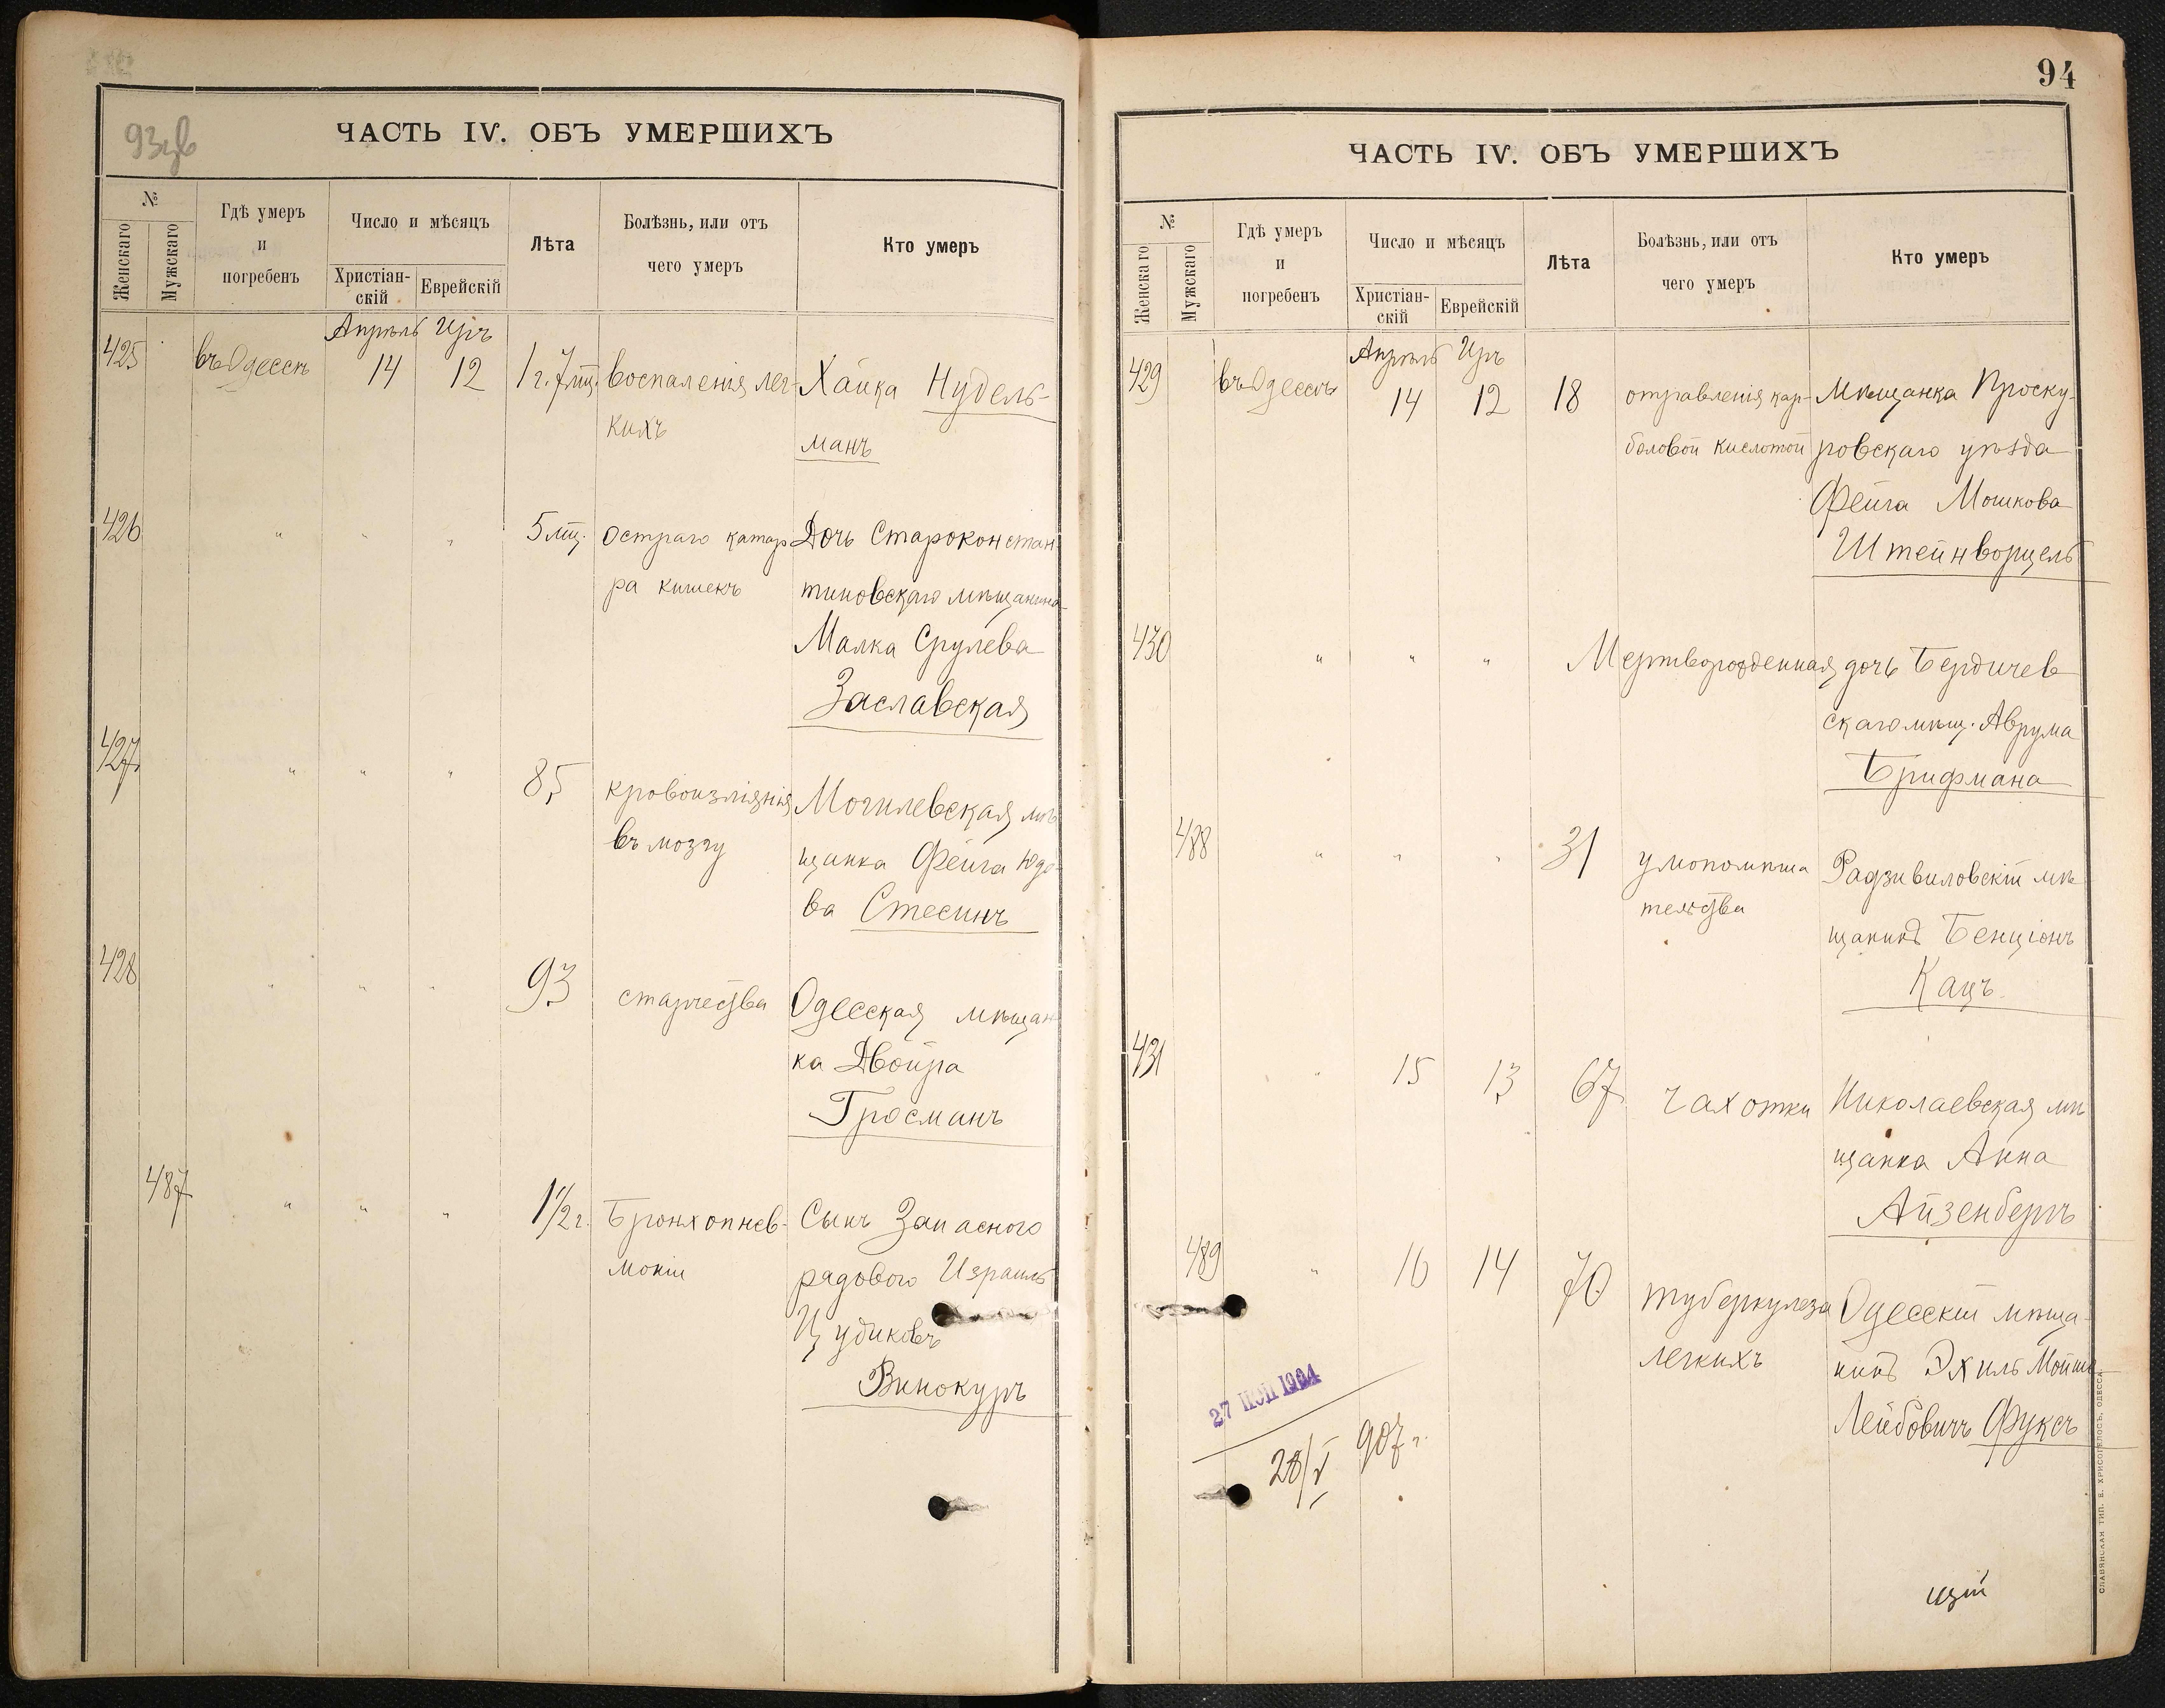 93 зв
ЧАСТЬ IV. ОБЪ УМЕРШИХЪ
№
Женскаго
Мужскаго
Гдѣ умеръ
и
погребенъ
Число и мѣсяцъ
Христіан-
скій
Еврейскій
Лѣта
Болѣзнь, или отъ
чего умеръ
Кто умеръ
Апрѣль Иръ
425 въ Одессѣ 14 12 1 г. 7 мц. воспаленія лег- Хайка Нудель-
кихъ манъ
426 " " " 5 мц. остраго катар Дочь Староконстан-
ра кишекъ тиновскаго мѣщанина
Малка Срулева
Заславская
427 " " " 85 кровоизліянія Могилевская мѣ
въ мозгу щанка Фейга Юдо-
ва Стесинъ
428 " " " 93 старчества Одесская мѣщан
ка Двойра
Гросманъ
487 " " " 1 1/2 г. Бронхопнев- Сынъ Запасного
моніи рядового Израиль
Цудиковъ
Винокуръ
94
ЧАСТЬ IV. ОБЪ УМЕРШИХЪ
№
Женскаго
Мужскаго
Гдѣ умеръ
и
погребенъ
Число и мѣсяцъ
Христіан-
скій
Еврейскій
Лѣта
Болѣзнь, или отъ
чего умеръ
Кто умеръ
Апрѣль Иръ
429 въ Одессѣ 14 12 18 отравленія кар- Мѣщанка Проску-
боловой кислотой ровскаго уѣзда
Фейга Мошкова
Штейнворцель
430 " " " Мертворожденная дочь Бердичев
скаго мѣщ. Аврума
Брифмана
488 " " " 31 умопомѣша Радзивиловскій мѣ
тельства щанинъ Бенціонъ
Кацъ
431 " 15 13 67 чахотки Николаевская мѣ
щанка Анна
Айзенбергъ
489 " 16 14 70 туберкулеза Одесскій мѣща-
легкихъ нинъ Эхиль Мойше
Лейбовичъ Фуксъ
27 1904
28/V 907 г.
СЛАВЯНСКАЯ ТИП. Е. ХРИСОГЕЛОСЪ, ОДЕССА